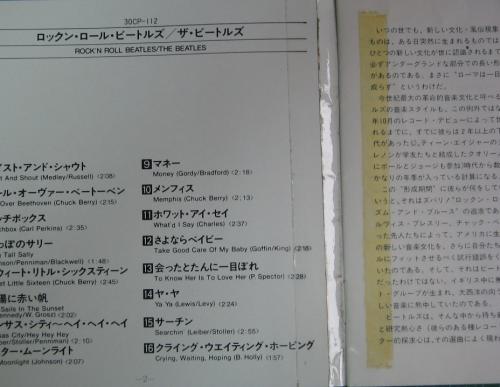 30CP-112
ロックン・ロール・ビートルズ/ザ・ビートルズ
ROCK'N ROLL BEATLES/THE BEATLES
イスト・アンド・シャウト
t And Shout (Medley/Russell) (2:08)
ール・オーヴァー・ベートーベン
Over Beethoven (Chuck Berry) (2:16)
ッチボックス
chbox (Carl Perkins) (2:35)
っぽのサリー
Tall Sally
nson/Penniman/Blackwell) (1:48)
ウィート・リトル・シックスティーン
et Little Sixteen (Chuck Berry) (2:45)
陽に赤い帆
Sails In The Sunset
ennedy/W. Grosz) (2:02)
ンサス・シティ〜ヘイ・ヘイ・ヘイ
sas City/Hey Hey Hey
ber/Stoller/Penniman) (2:10)
ター・ムーンライト
Moonlight (Johnson) (2:07)
9 マネー
Money (Gordy/Bradford) (2:18)
10 メンフィス
Memphis (Chuck Berry) (2:13)
11 ホワット・アイ・セイ
What'd I Say (Charles) (2:37)
12 さよならベイビー
Take Good Care Of My Baby (Goffin/King) (2:18)
13 会ったとたんに一目ぼれ
To Know Her Is To Love Her (P. Spector) (2:28)
14 ヤ・ヤ
Ya Ya (Lewis/Levy) (2:24)
15 サーチン
Searchin' (Leiber/Stoller) (2:55)
16 クライング・ウエイティング・ホーピング
Crying, Waiting, Hoping (B. Holly) (1:57)
—2—
いつの世でも、新しい文化・風俗現象
ものは、ある日突然に生まれるものでは
ひとつの新しい文化が世に認識されるまで
必ずアンダーグランドな部分での長い形
があるのである。まさに“ローマは一日
成らず”というわけだ。
今世紀最大の革命的音楽文化と呼べる
ルズの音楽スタイルも、この例外ではな
年10月のレコード・デビューによって世
れるまでに、すでに彼らは2年以上の下
代があった
レノンが学友たちと結成したクオリー
にポールとジョージも参加)時代から数
かなりの年季が入っている計算になる。
この“形成期間”に彼らが何をして
いうと、それはズバリ“ロックン・ロ
ズム・アンド・ブルース”の追求であ
ルヴィス・プレスリー、チャック・ベ
った先人たちによって、アメリカに生
の新しい音楽を、さらに自分たち
ルにフィットさせるべく試行錯誤をく
いたのである。そして、それはビート
だったわけではない。イギリス中に無
ト・グループが生まれ、大西洋の向う
しい音楽に熱中していたのである。
ビートルズは、そんな中から持ち前
と研究熱心さ(彼らのある種レコー
ター的探求心は、その選曲によく現わ